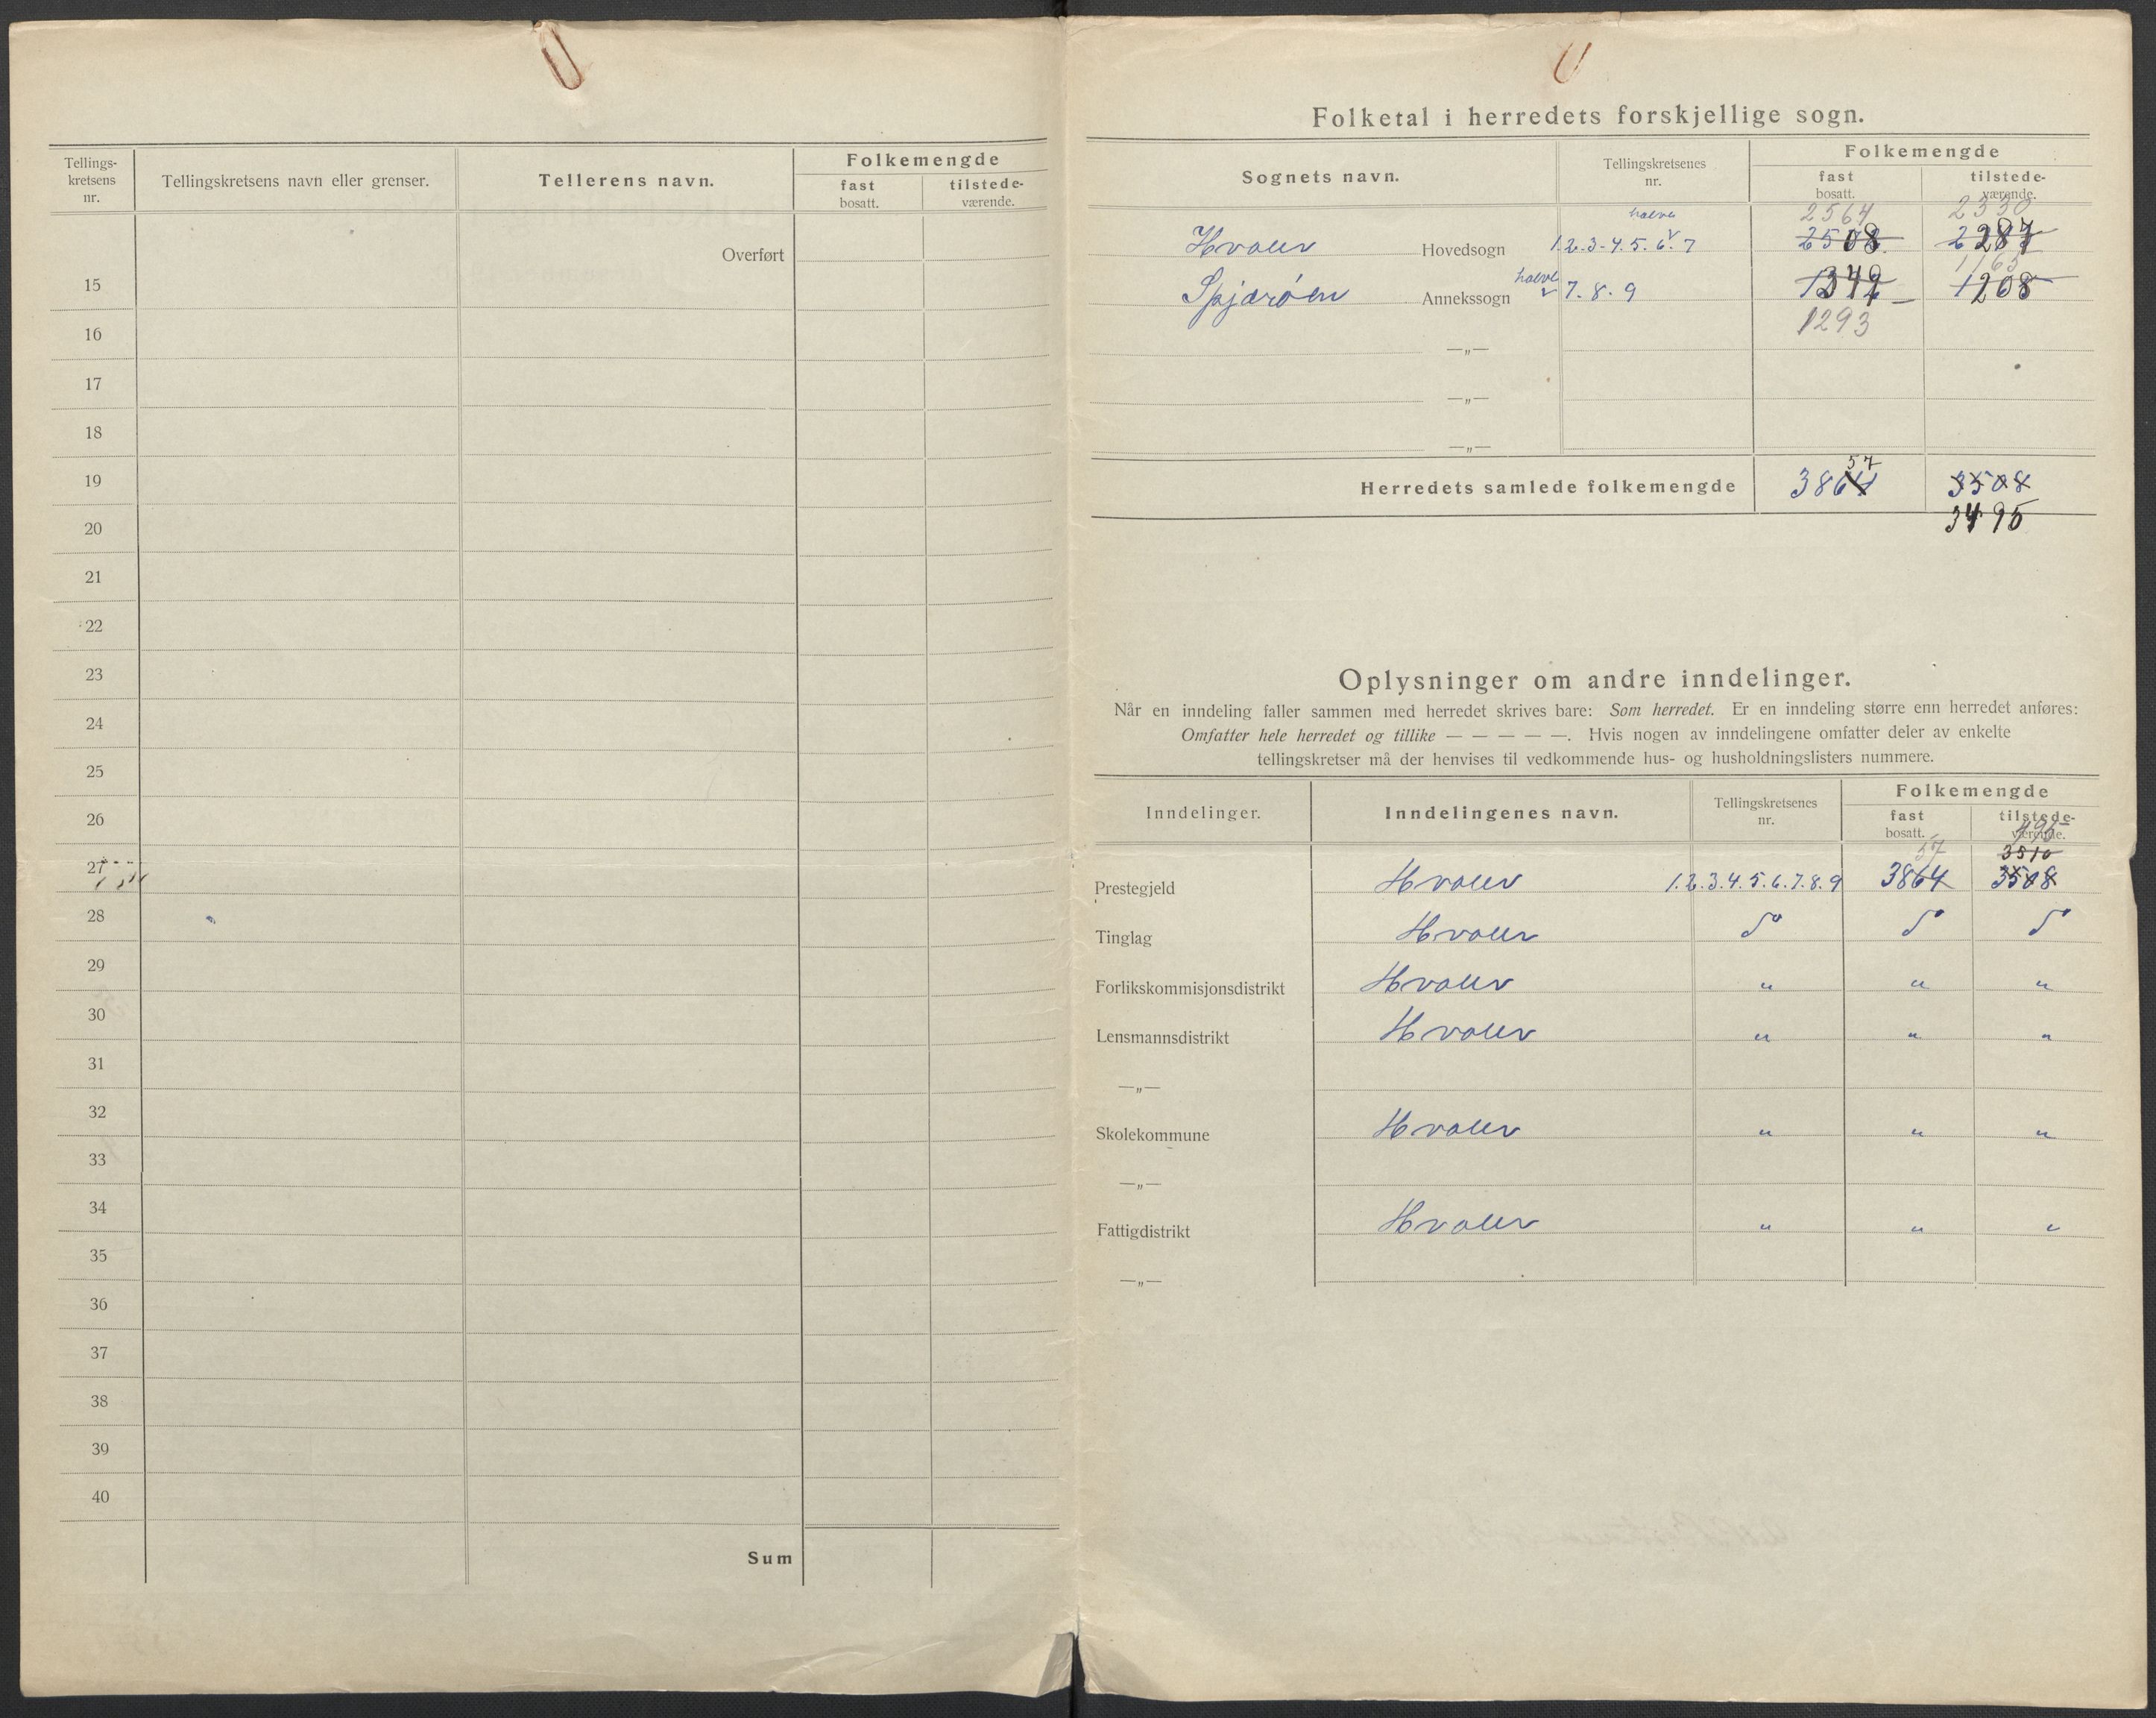 Tellings-
kretsens
nr.
Tellingskretsens navn eller grenser.
Tellerens navn.
Folkemengde
fast
bosatt.
tilstede-
værende.
Overført
15
16
17
18
19
20
21
22
23
24
25
26
27
28
29
30
31
32
33
34
35
36
37
38
39
40
Sum
Folketal i herredets forskjellige sogn.
Sognets navn.
Tellingskretsenes
nr.
Folkemengde
fast
bosatt.
tilstede-
værende.
halve
2564
2330
Hvaler Hovedsogn 1.2.3.4.5.6.7 2508 2287
1165
halve
Spjærøen Annekssogn 7.8.9 1208
1293
—„—
—„—
—„—
57
Herredets samlede folkemengde 3864 3508
3495
Oplysninger om andre inndelinger.
Når en inndeling faller sammen med herredet skrives bare: Som herredet. Er en inndeling større enn herredet anføres:
Omfatter hele herredet og tillike — — — — —. Hvis nogen av inndelingene omfatter deler av enkelte
tellingskretser må der henvises til vedkommende hus- og husholdningslisters nummere.
Inndelinger.
Inndelingenes navn.
Tellingskretsenes
nr.
Folkemengde
fast
bosatt.
tilstede-
værende.
495
57 3510
Prestegjeld Hvaler 1.2.3.4.5.6.7.8.9 3864 3508
Tinglag Hvaler
Forlikskommisjonsdistrikt Hvaler " " "
Lensmannsdistrikt Hvaler " " "
—„—
Skolekommune Hvaler " " "
—„—
Fattigdistrikt Hvaler " " "
—„—